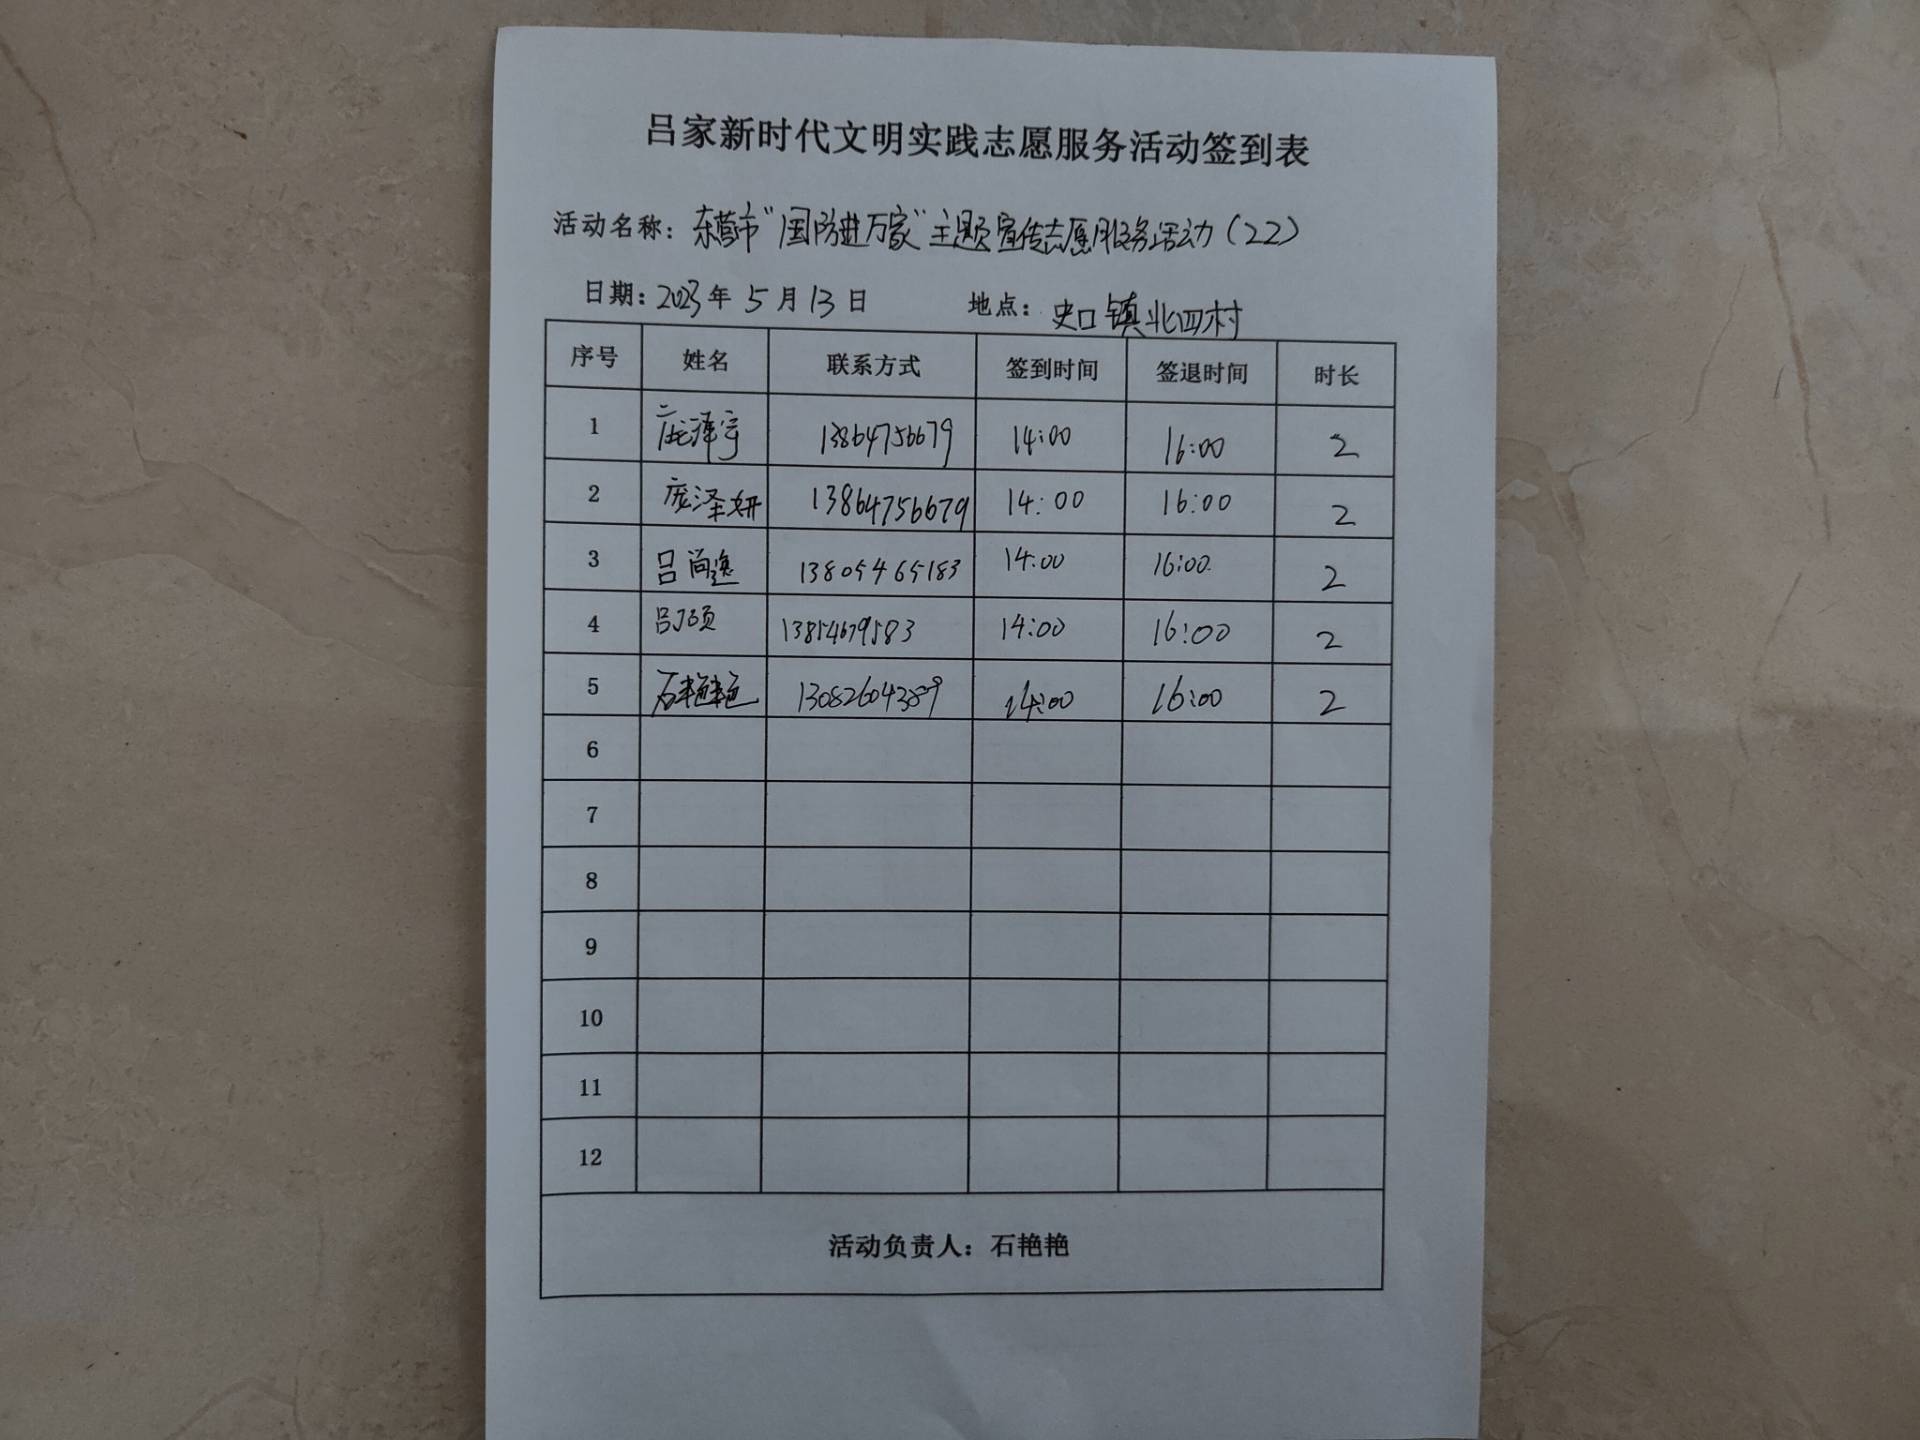 吕家新时代文明实践志愿服务活动签到表
活动名称：东营市“国防进万家”主题宣传志愿服务活动（22）
日期：2023年5月13日 地点：史口镇北四村
序号 姓名 联系方式 签到时间 签退时间 时长
1 庞泽宇 13864756679 14:00 16:00 2
2 庞泽妍 13864756679 14:00 16:00 2
3 吕尚逸 13805465183 14:00 16:00 2
4 吕 13854679583 14:00 16:00 2
5 石艳艳 13082604389 14:00 16:00 2
6
7
8
9
10
11
12
活动负责人：石艳艳